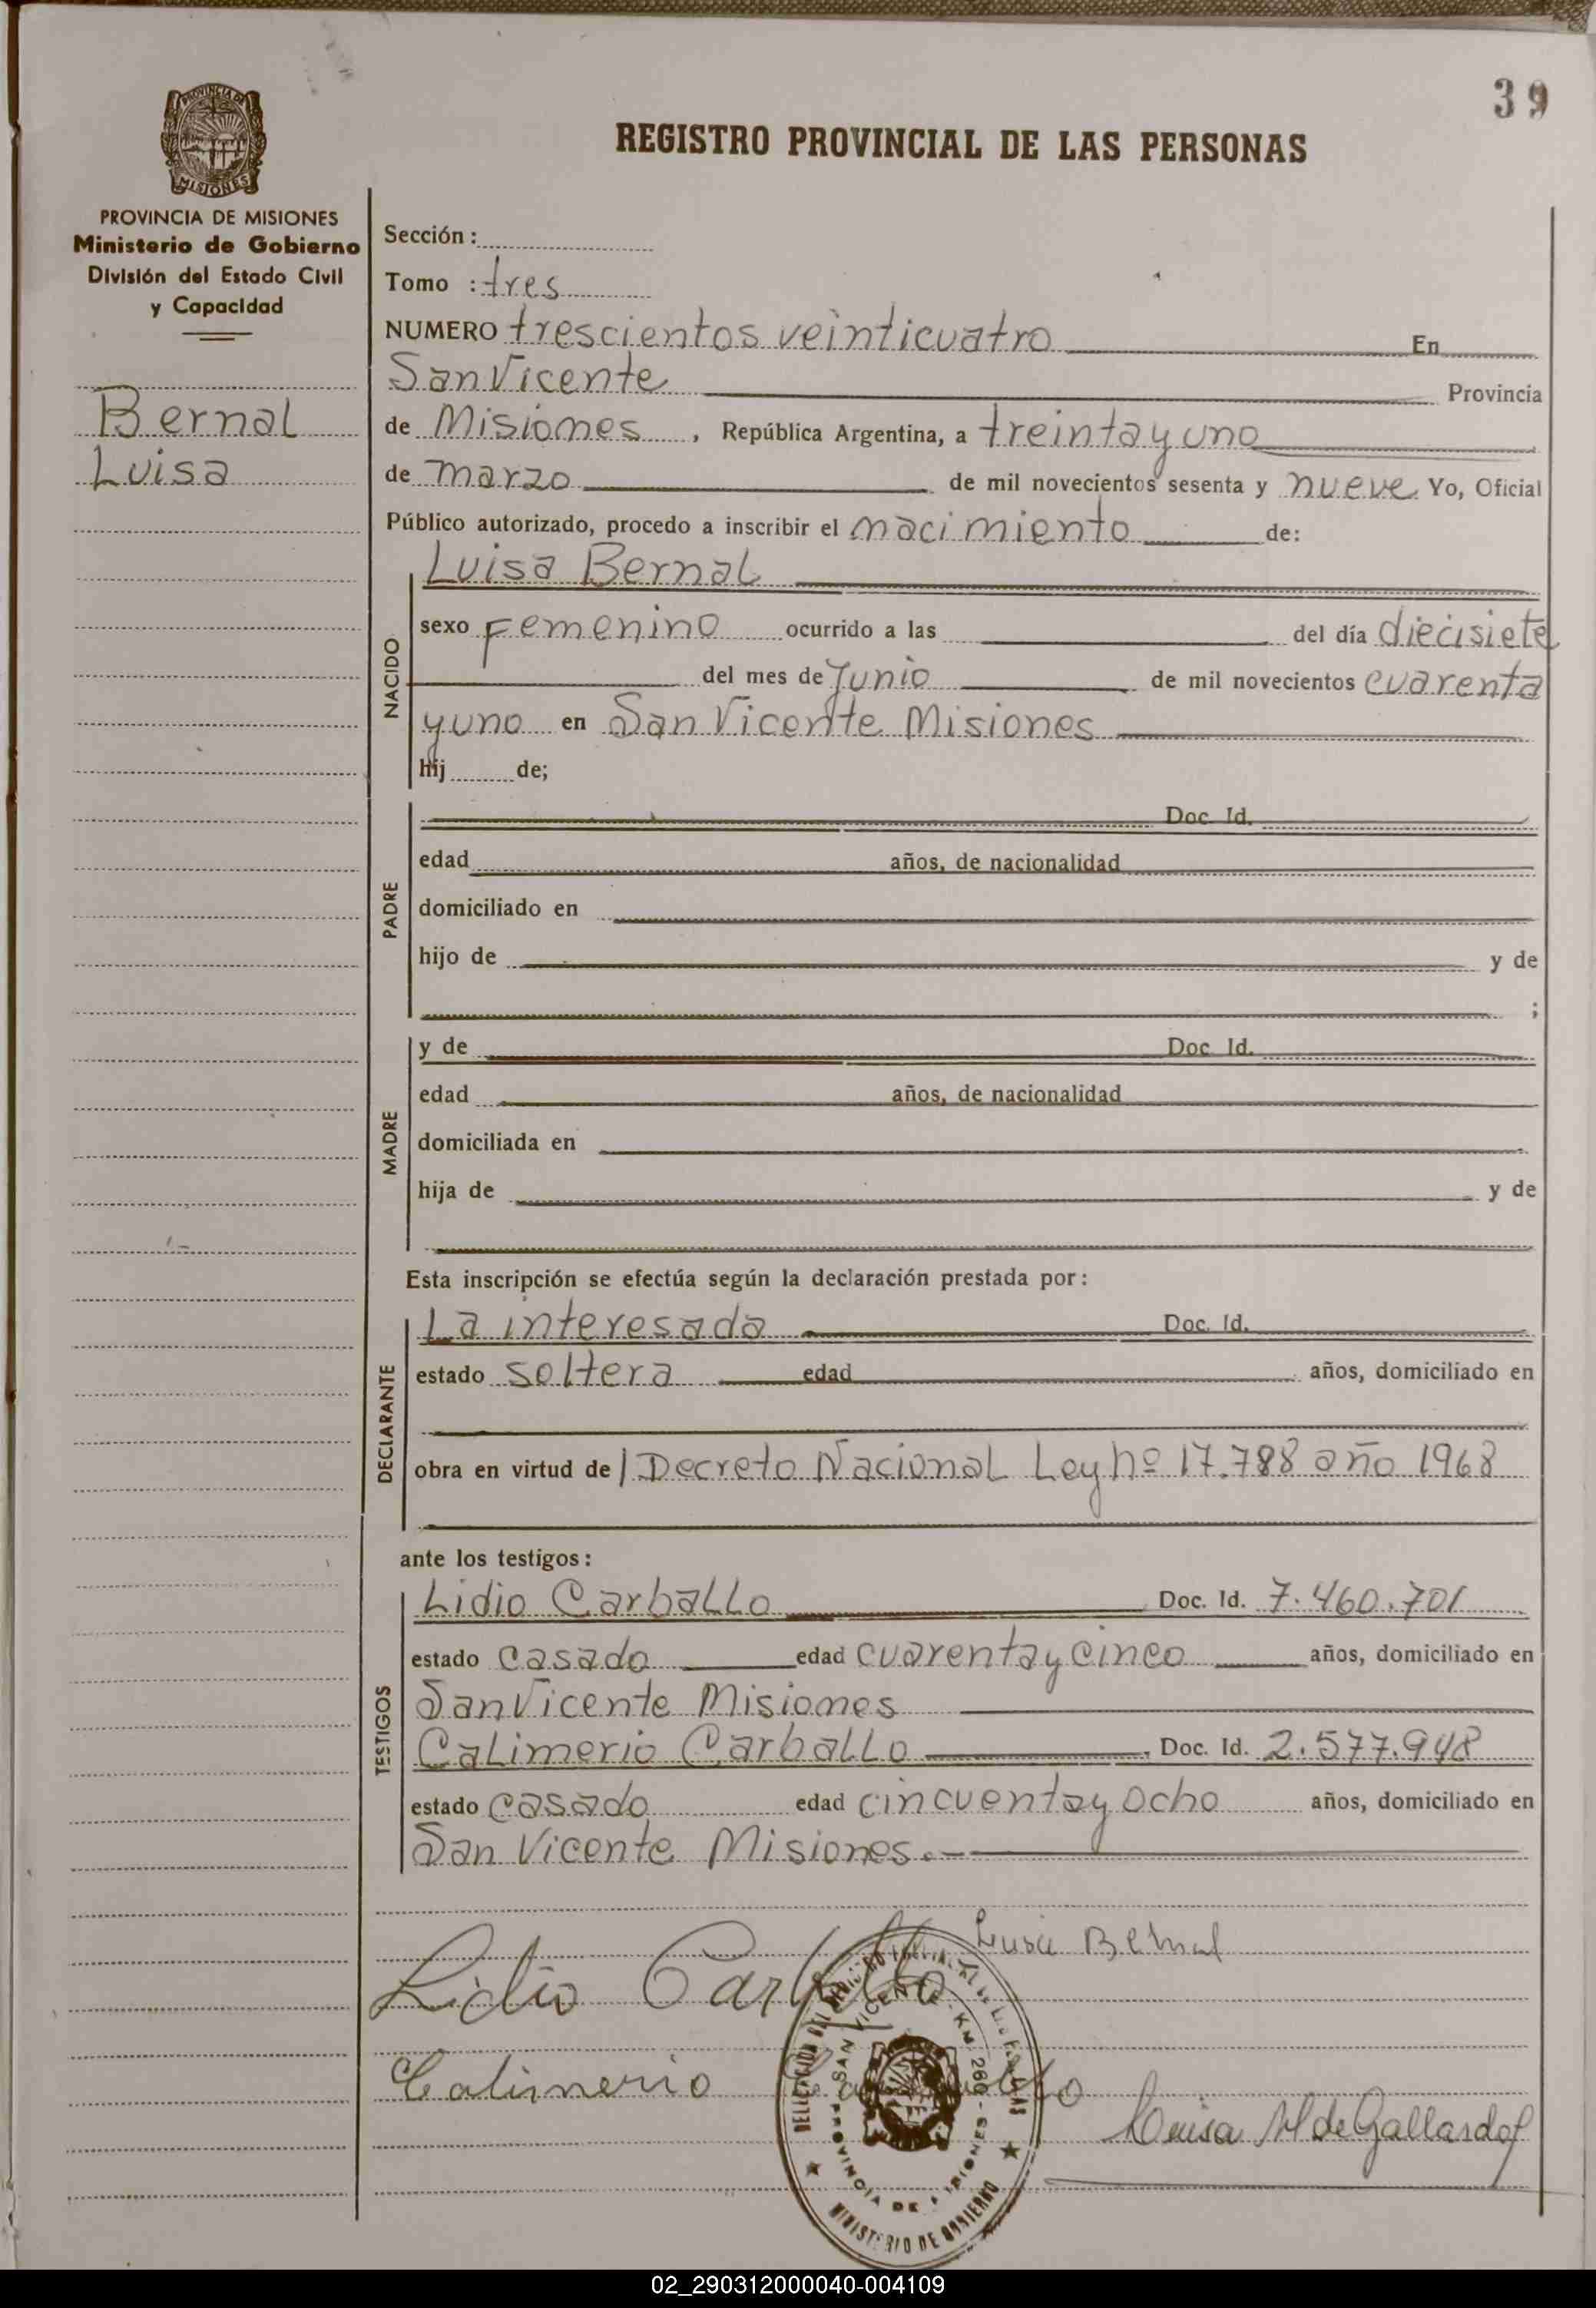 39
PROVINCIA DE
MISIONES
REGISTRO PROVINCIAL DE LAS PERSONAS
PROVINCIA DE MISIONES
Ministerio de Gobierno
División del Estado Civil
y Capacidad
Bernal
Luisa
Sección:
Tomo : tres
NUMERO trescientos veinticuatro En
San Vicente Provincia
de Misiones, República Argentina, a treinta y uno
de marzo de mil novecientos sesenta y nueve Yo, Oficial
Público autorizado, procedo a inscribir el nacimiento de:
NACIDO
Luisa Bernal
sexo Femenino ocurrido a las del día diecisiete
del mes de Junio de mil novecientos cuarenta
y uno en San Vicente Misiones
hij de;
PADRE
Doc. Id.
edad años, de nacionalidad
domiciliado en
hijo de y de
;
MADRE
y de Doc. Id.
edad años, de nacionalidad
domiciliada en
hija de y de
Esta inscripción se efectúa según la declaración prestada por:
DECLARANTE
La interesada Doc. Id.
estado soltera edad años, domiciliado en
obra en virtud de Decreto Nacional Ley nº 17.788 año 1968
ante los testigos:
TESTIGOS
Lidio Carballo Doc. Id. 7.460.701
estado casado edad cuarenta y cinco años, domiciliado en
San Vicente Misiones
Calimerio Carballo Doc. Id. 2.577.948
estado casado edad cincuenta y ocho años, domiciliado en
San Vicente Misiones.-
Luisa Bernal
Lidio Carballo
Calimerio Carballo
Luisa M de Gallardo
SAN VICENTE - KM. 260 - MISIONES
PROVINCIA DE MISIONES
MINISTERIO DE GOBIERNO
02_290312000040-004109